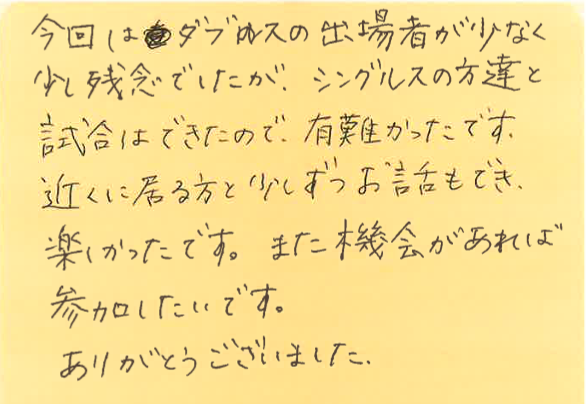 今回はダブルスの出場者が少なく
少し残念でしたが、シングルスの方達と
試合はできたので、有難かったです。
近くに居る方と少しずつお話もでき、
楽しかったです。また機会があれば
参加したいです。
ありがとうございました。